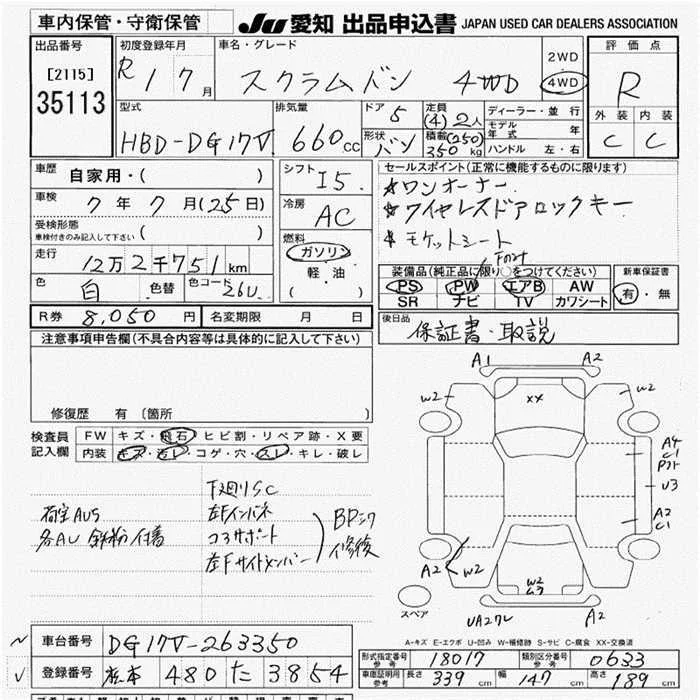 車内保管・守衛保管
JU 愛知 出品申込書 JAPAN USED CAR DEALERS ASSOCIATION
出品番号
[2115]
35113
初度登録年月
R 1 7 月
車名・グレード
スクラムバン 4WD
2WD
4WD
評価点
R
外装 内装
C C
型式
HBD-DG17V
排気量
660 cc
ドア
5
形状
バン
定員
(4) 2人
積載 (250)
350 kg
ディーラー・並行
モデル年式 年
ハンドル 左・右
車歴
自家用・( )
車検
7 年 7 月(25日)
受検形態
車検付きのみ記入して下さい ( )
走行
12万2千751 km
色
白
色替
色コード
26U
シフト
I5
冷房
AC
燃料
ガソリン
軽・油
( )
セールスポイント(正常に機能するものに限ります)
★ワンオーナー
★ワイヤレスドアロックキー
★モケットシート
Front
装備品(純正品に限り○をつけてください)
PS PW エアB AW
SR ナビ TV カワシート
新車保証書
有・無
R券 8,050 円
名変期限 月 日
後日品
保証書・取説
注意事項申告欄(不具合内容等は具体的に記入して下さい)
修復歴 有〔箇所 〕
検査員記入欄
FW キズ・飛石・ヒビ割・リペア跡・X要
内装 キズ・汚レ・コゲ・穴・スレ・キレ・破レ
荷室AUS
各AU 鉄粉付着
下廻りSC
左Fインパネ
コアサポート
左Fサイドメンバー
修復
A1
A2
W2
XX
W2
A4
C1
U3
A2
C1
A2
W2
W2
UA2クレ
A2
スペア
A-キズ E-エクボ U-凹み W-補修跡 S-サビ C-腐食 XX-交換済
車台番号
DG17V-263350
登録番号
480 た 3854
形式指定番号
参考
18017
類別区分番号
参考
0633
車庫証明用
参考
長さ 339 cm
幅 147 cm
高さ 189 cm